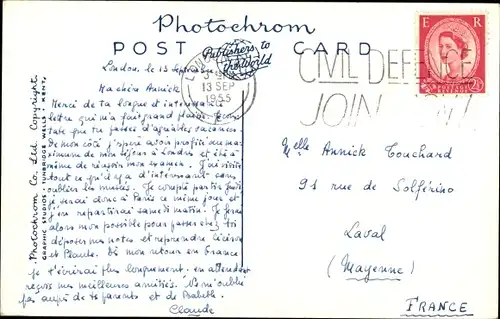 Photochrom
POST CARD
Publishers to
the World
LONDON
13 SEP
1955
CIVIL DEFENCE
JOIN NOW!
E R
POSTAGE
REVENUE
2½
Photochrom Co. Ltd. Copyright.
GRAPHIC STUDIOS - TUNBRIDGE WELLS - KENT.
London, le 13 septembre
Ma chère Annick
Merci de ta longue et intéressante
lettre qui m'a fait grand plaisir. Je
que tu passes d'agréables vacances.
De mon côté, j'espère avoir profité au ma-
ximum de mon séjour à Londres et
mine de réussir mon examen. J'ai visité
tout ce qu'il y a d'intéressant sans
oublier les musées. Je compte partir
je serai donc à Paris ce même jour et
j'en repartirai samedi matin. Je ferai
alors mon possible pour passer chez toi
déposer mes notes et reprendre
et Plaude. Dès mon retour en France
je t'écrirai plus longuement. en attendant
reçois mes meilleures amitiés. Ne m'oublie
pas auprès de tes parents et de Babeth.
Claude
Melle Annick Touchard
91 rue de Solférino
Laval
(Mayenne)
FRANCE